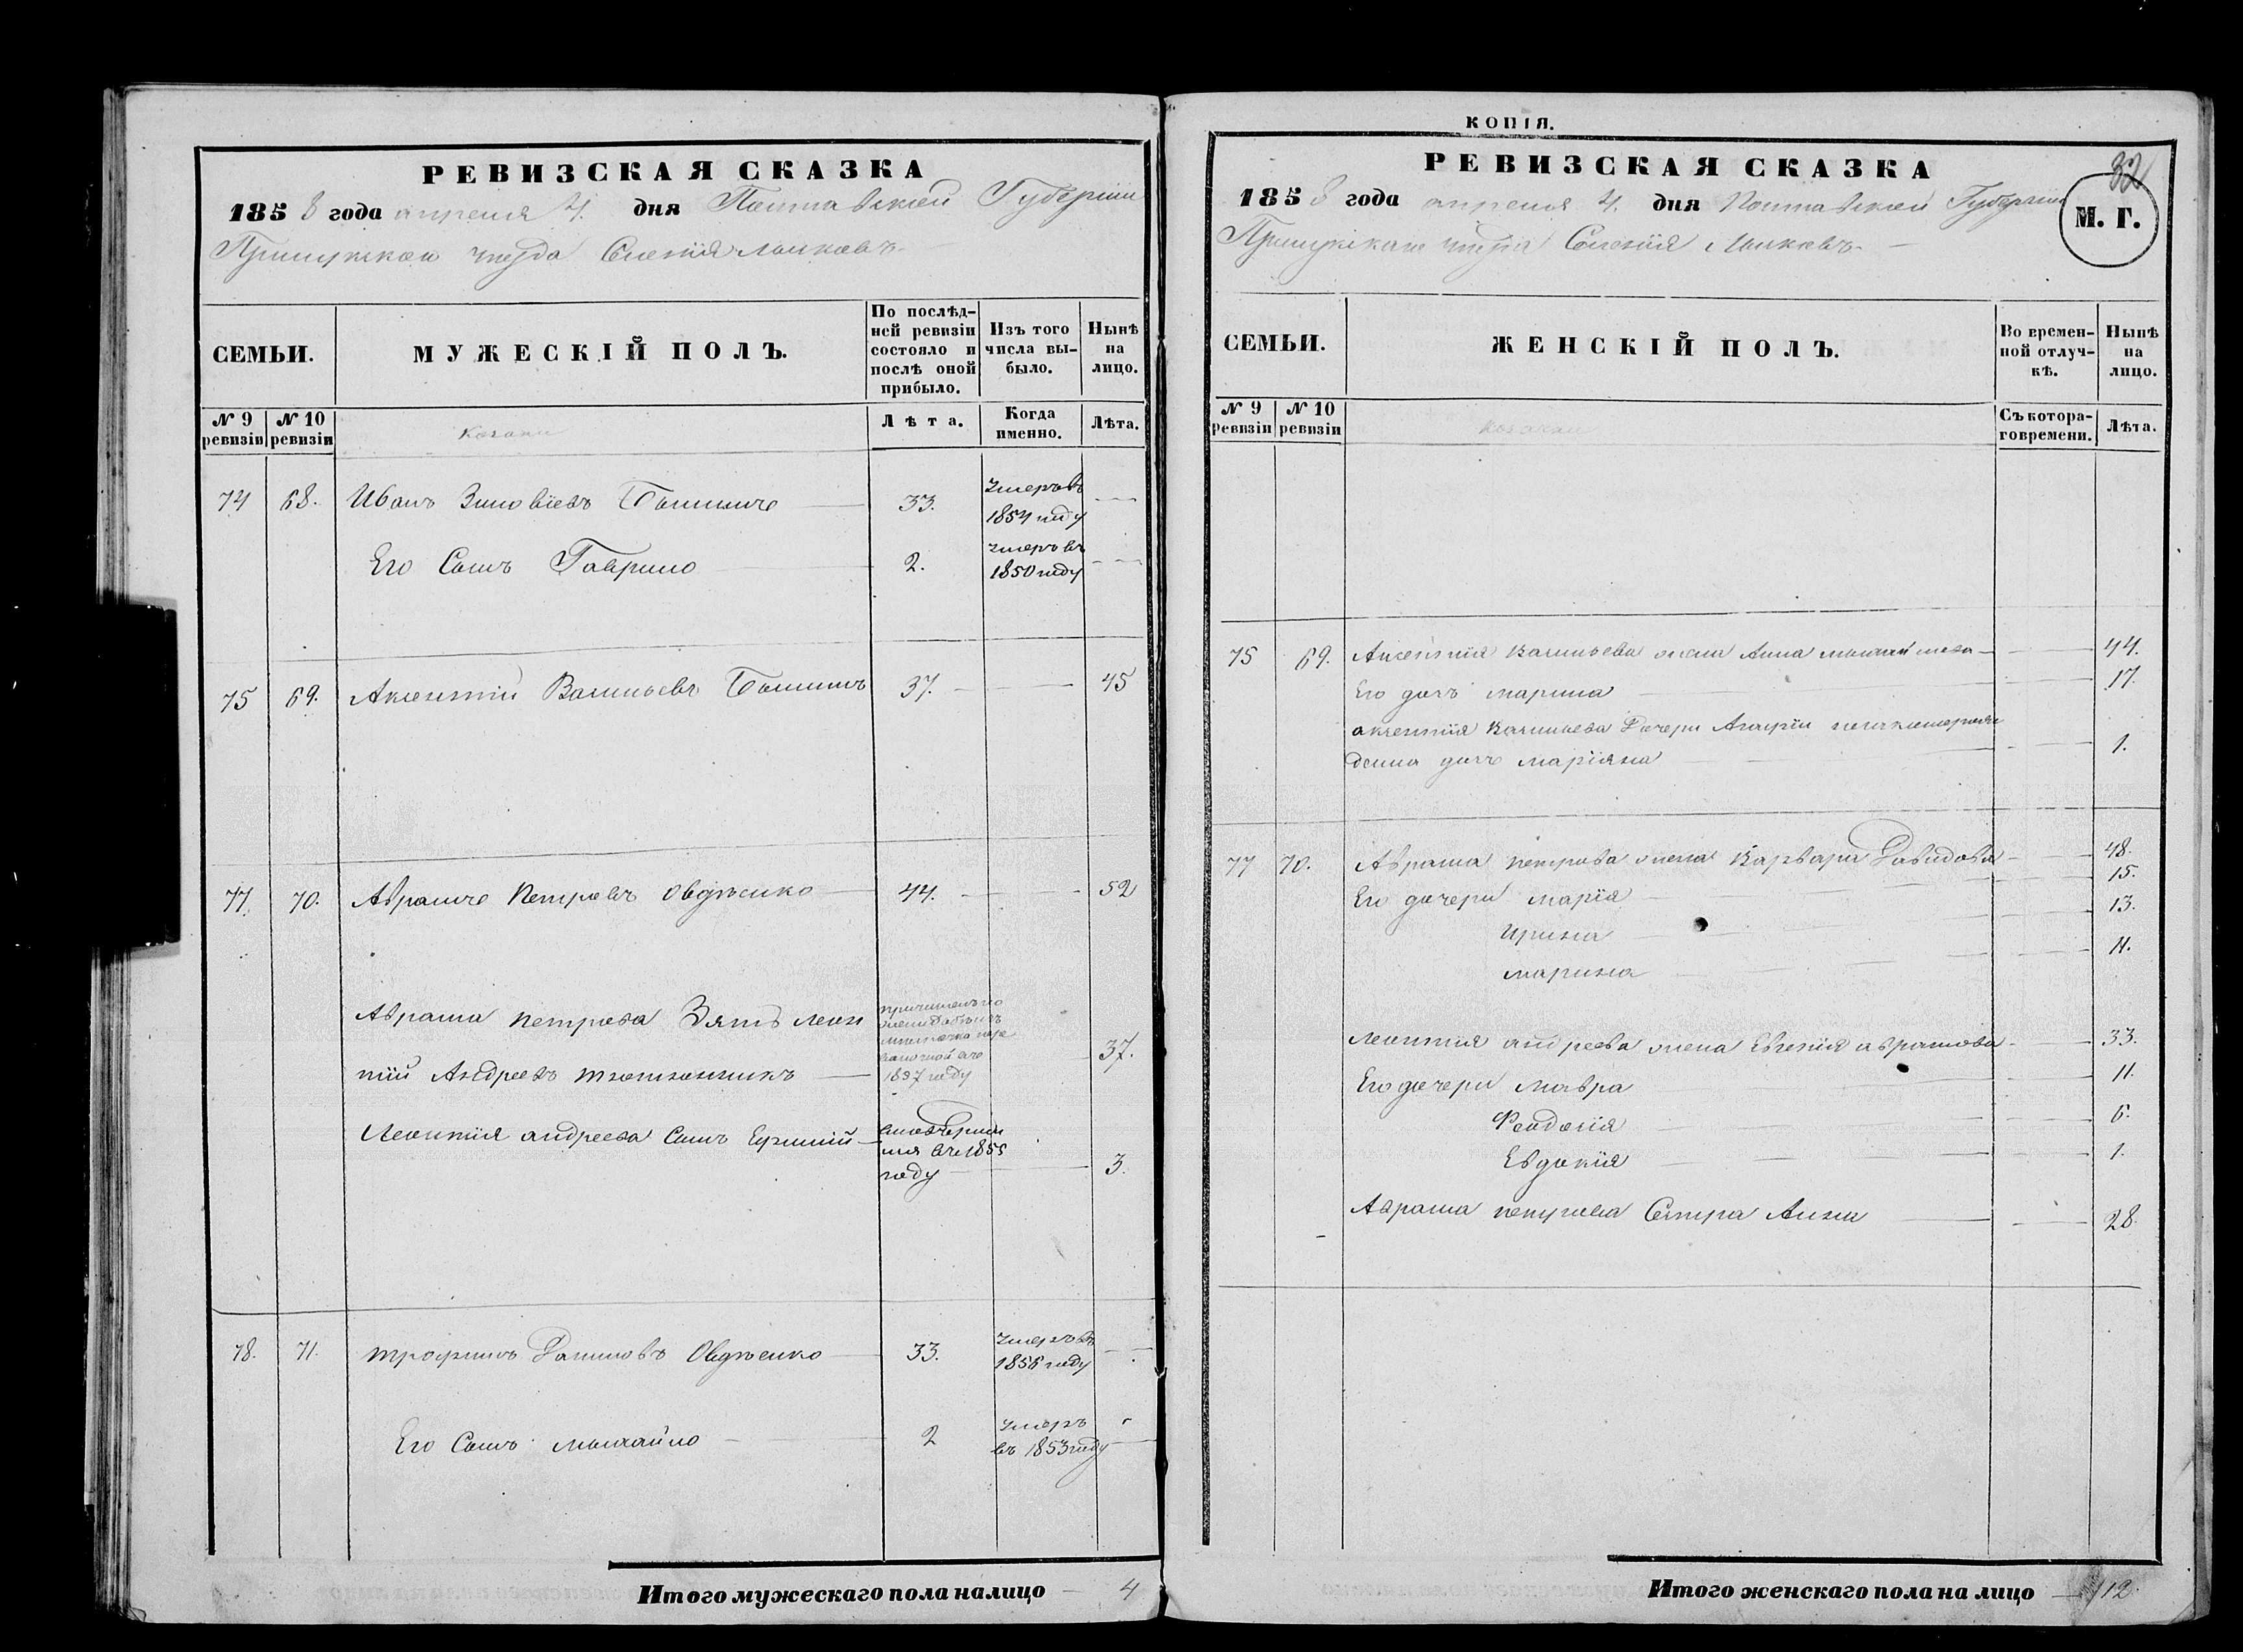 РЕВИЗСКАЯ СКАЗКА
1858 года апреля 4. дня Полтавской Губернiи
Прилукскаго уезда Селенiя Лынковъ
СЕМЬИ.
МУЖЕСКIЙ ПОЛЪ.
По послѣд-
ней ревизiи
состояло и
послѣ оной
прибыло.
Изъ того
числа вы-
было.
Нынѣ
на
лицо.
№ 9 ревизiи
№ 10 ревизiи
Козаки
Лѣта.
Когда именно.
Лѣта.
74 68. Иванъ Зиновiевъ 33. умеръ въ 1854 году
Его Сынъ Гаврило 2. умеръ въ 1850 году
75 69. Аксентiй Васильевъ 37. 45
77. 70. Аврамъ Петровъ Овдѣенко 44. 52
Аврама Петрова Зять Леон
тiй Андреевъ 37.
1857 году
Леонтiя андреева Сынъ 1855
году 3.
78. 71. трофимъ Даниловъ Овдѣенко 33. умеръ въ 1856 году
Его Сынъ михайло 2 умеръ въ 1853 году
Итого мужескаго пола налицо 4
КОПIЯ.
РЕВИЗСКАЯ СКАЗКА
32
М. Г.
1858 года апреля 4. дня Полтавской Губернiи
Прилукскаго уезда Селенiя Лынковъ
СЕМЬИ.
ЖЕНСКIЙ ПОЛЪ.
Во времен-
ной отлуч-
кѣ.
Нынѣ
на
лицо.
№ 9 ревизiи
№ 10 ревизiи
Козачки
Съ котора-
го времени.
Лѣта.
75 69. Аксентiя Васильева жена Анна 44.
Его дочь марина 17.
аксентiя Васильева Дочери
дочь марiяна 1.
77 70. Аврама петрова жена Варвара Давидова 48.
Его дочери марiя 15.
Ирина 13.
марина 11.
Леонтiя андреева жена Евгенiя аврамова 33.
Его дочери мавра 11.
Феодосiя 6.
Евдокiя 1.
Аврама петрова Сестра Анна 28.
Итого женскаго пола на лицо 12.